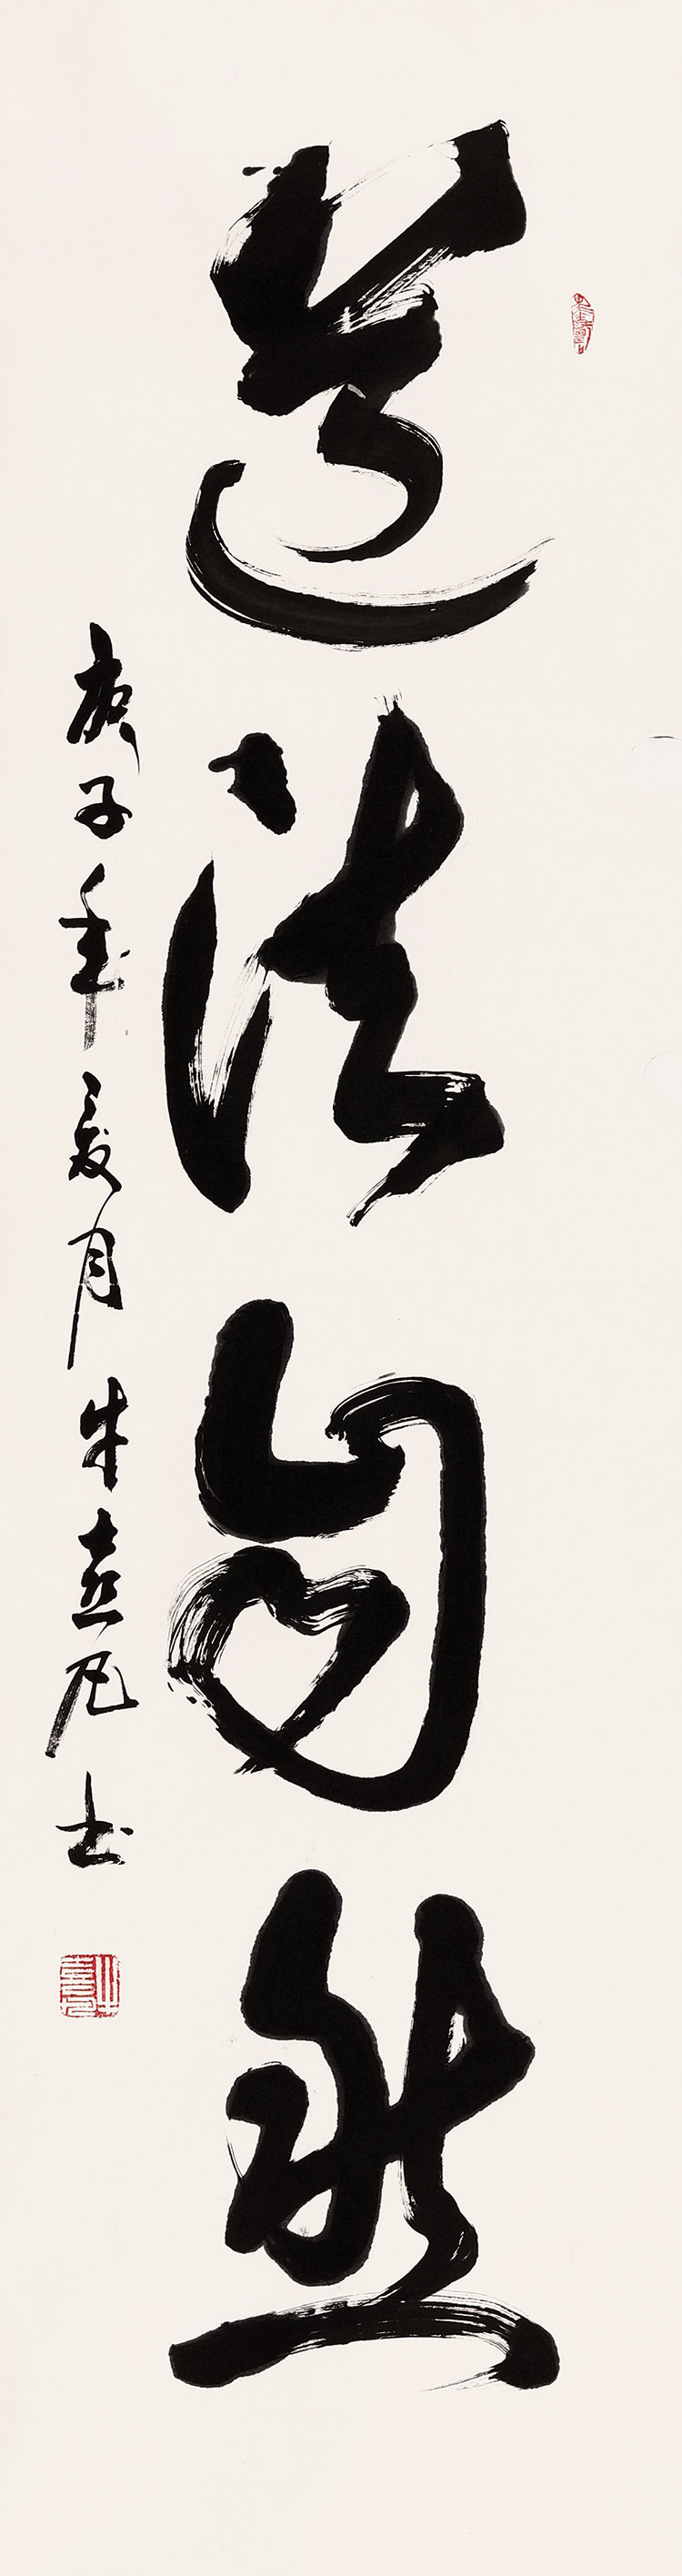 道法自然
庚子年夏月朱熹凡书